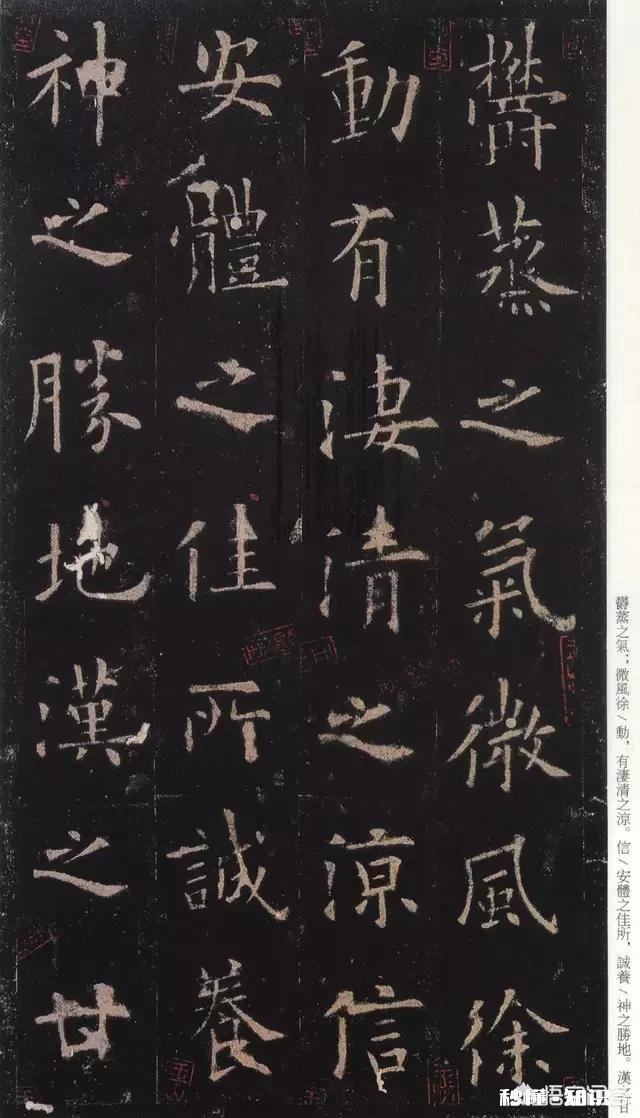 鬱蒸之氣微風徐
動有淒清之涼信
安體之佳所誠養
神之勝地漢之甘
鬱蒸之氣；微風徐/動，有淒清之涼。信/安體之佳所，誠養/神之勝地。漢之甘